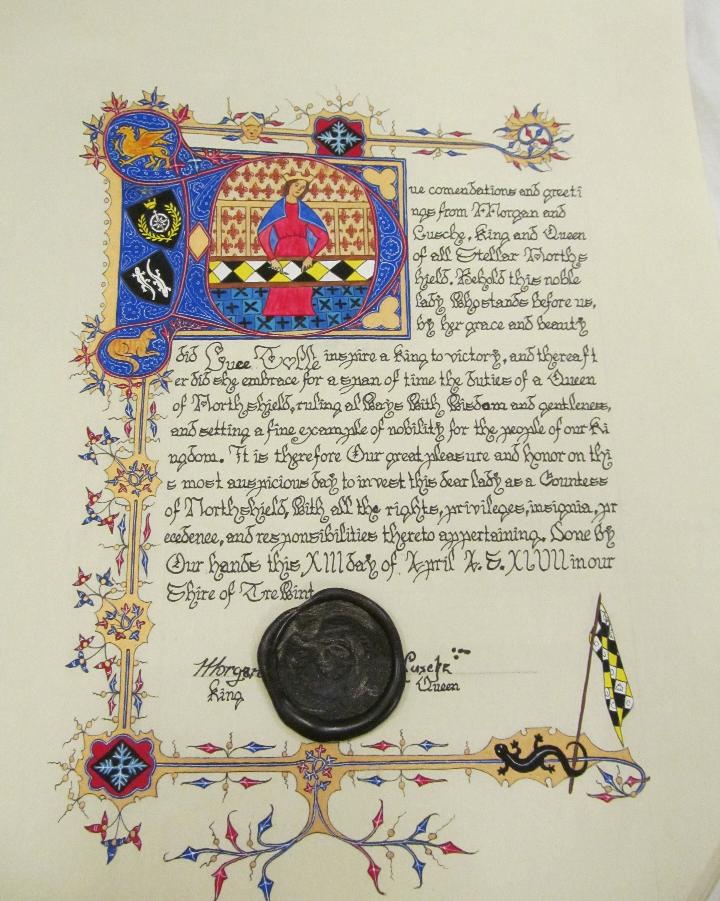 ue comendations and greeti
ngs from Morgan and
Cusche, King and Queen
of all Stellar Norths
hield. Behold this noble
lady who stands before us,
by her grace and beauty
did inspire a King to victory, and thereaft
er did she embrace for a span of time the duties of a Queen
of Northshield, ruling always with wisdom and gentleness,
and setting a fine example of nobility for the people of our Ki
ngdom. It is therefore Our great pleasure and honor on thi
s most auspicious day to invest this dear lady as a Countess
of Northshield, with all the rights, privileges, insignia, pr
ecedence, and responsibilities thereto appertaining. Done by
Our hands this XIII day of April A.S. XLVII in our
Shire of Trewint
Morgan
King
Cusche
Queen